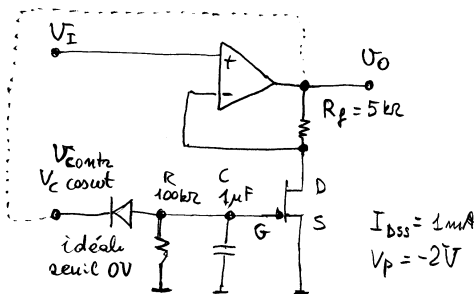 V_I
+
-
V_O
R_f = 5kΩ
V_contr
V_c cosωt
R
100kΩ
C
1μF
D
G
S
idéale
seuil 0V
I_DSS = 1mA
V_p = -2V